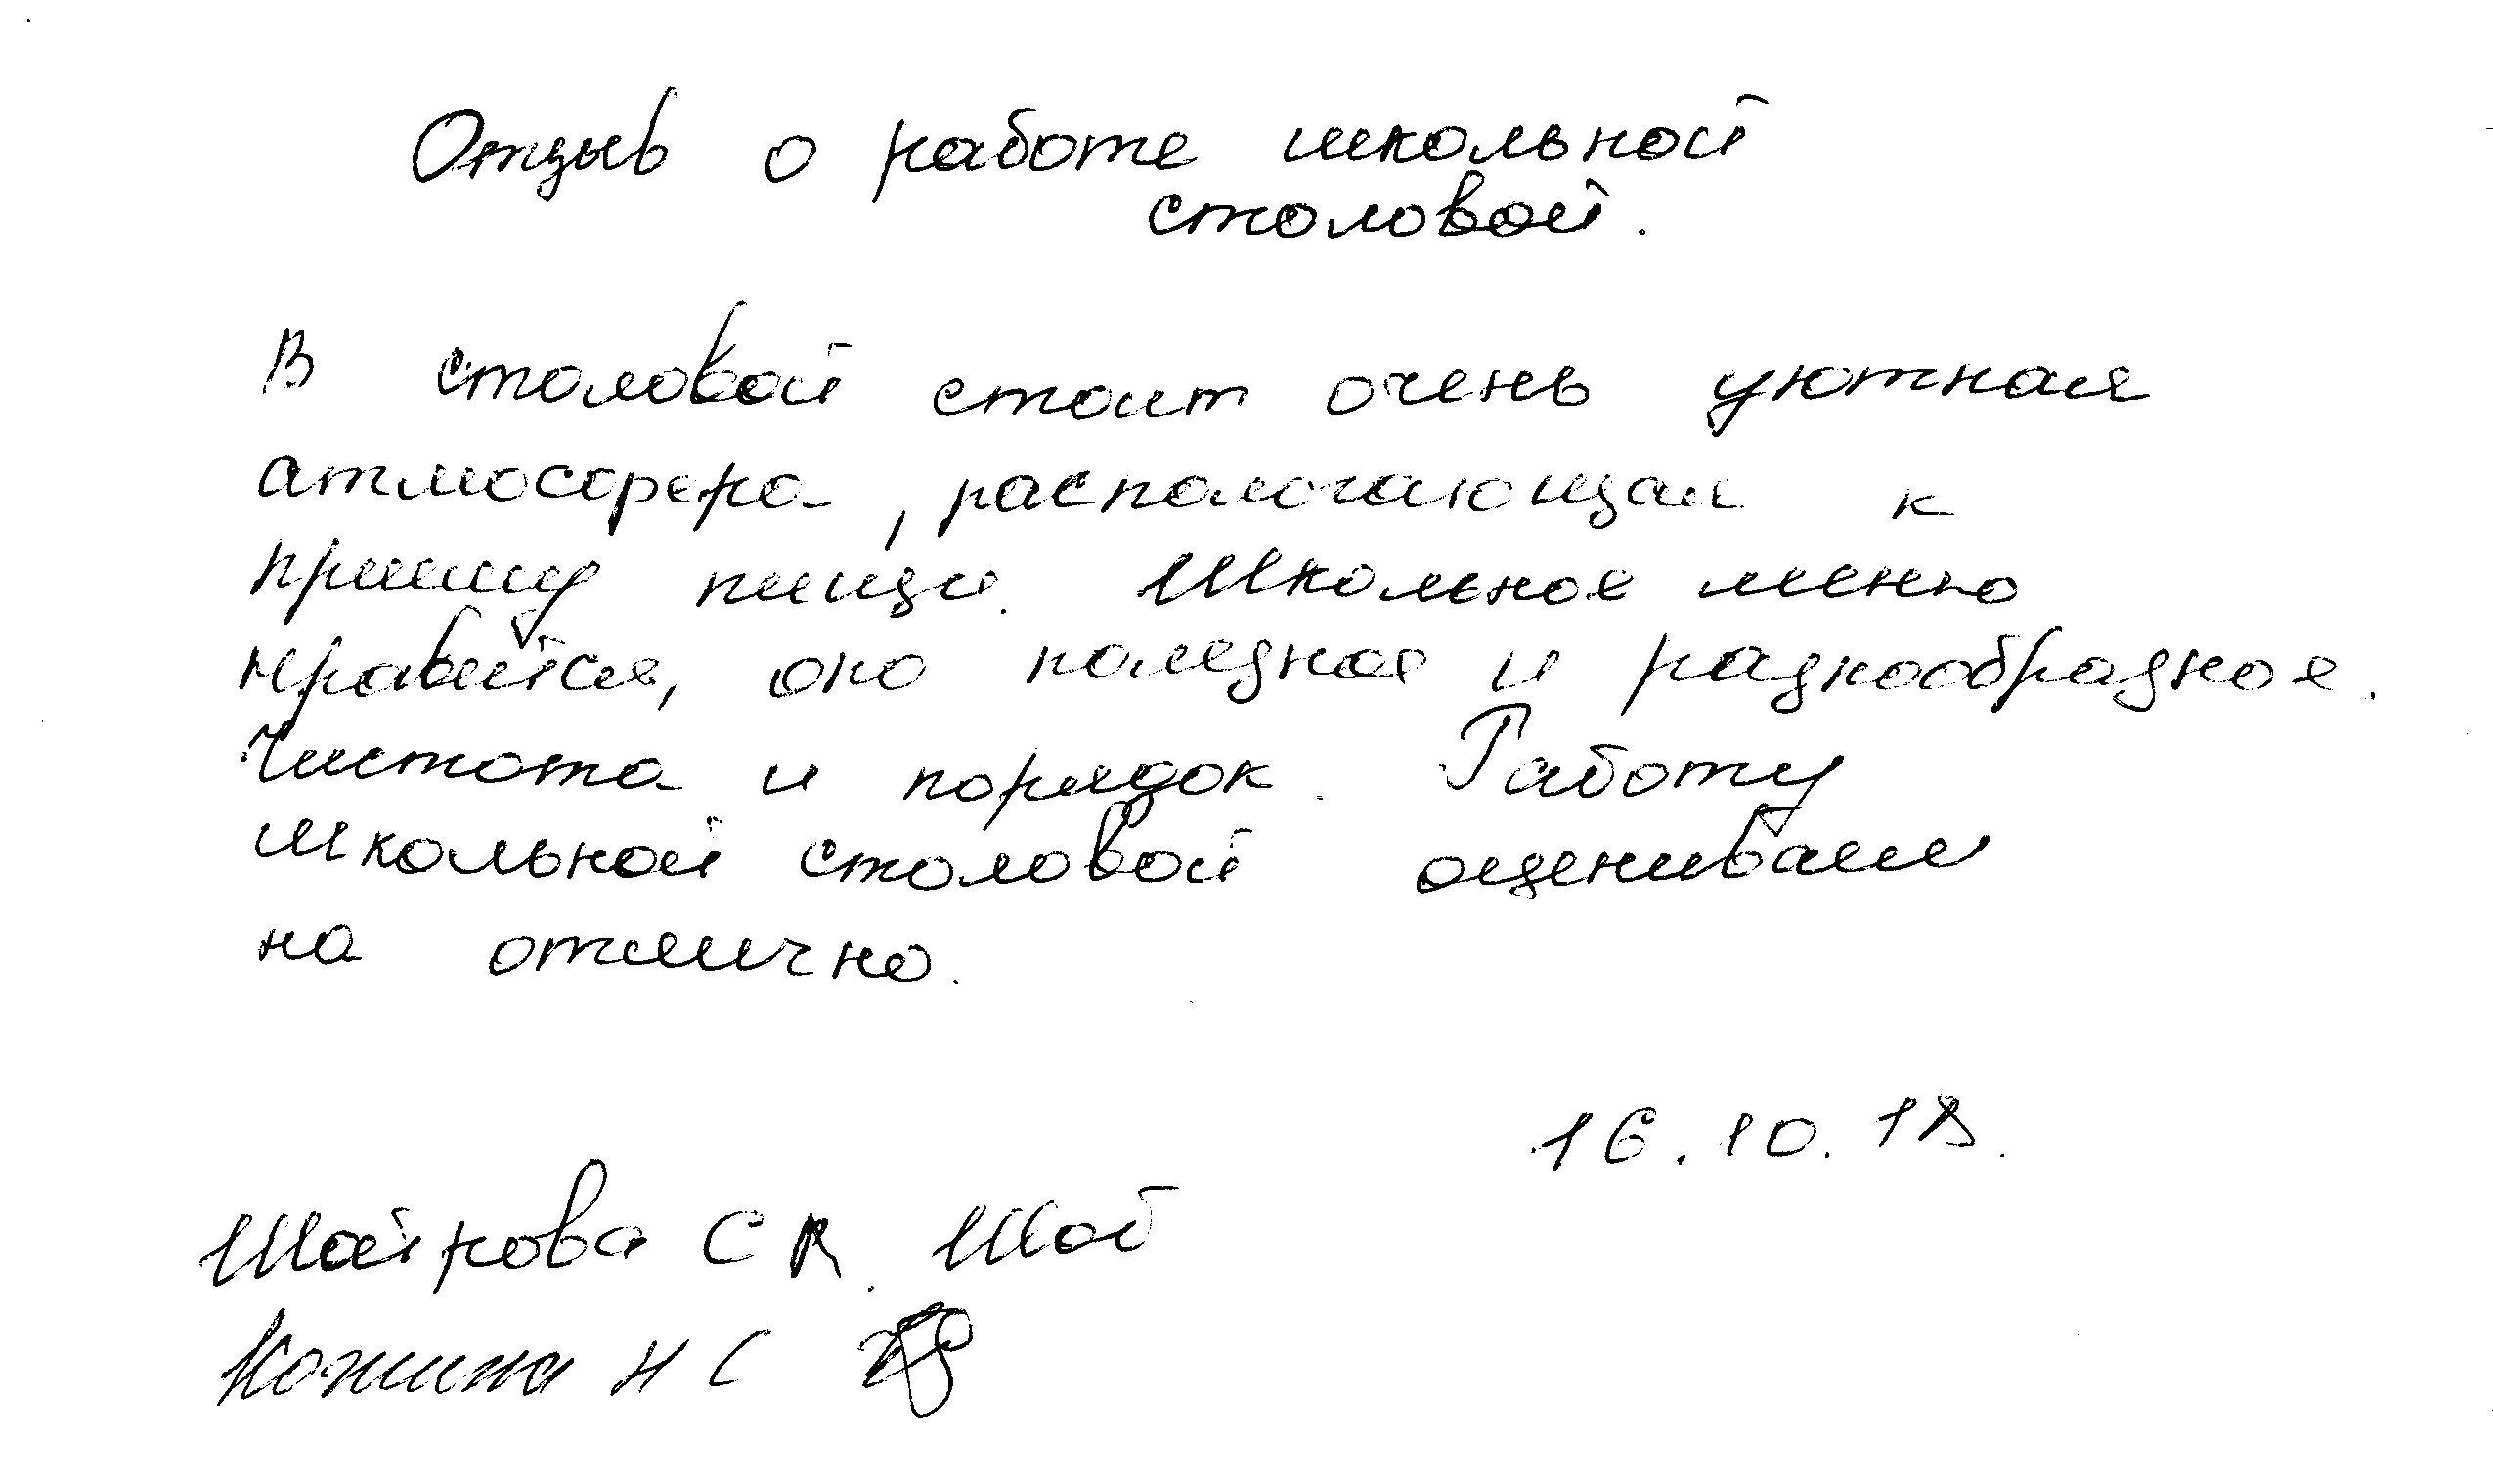 Отзыв о работе школьной
столовой.
В столовой стоит очень уютная
атмосфера, распологающая к
приему пищи. Школьное меню
нравится, оно полезное и разнообразное.
Чистота и порядок. Работу
школьной столовой оцениваем
на отлично.
16.10.18.
Шайкова С
Кокина Н С